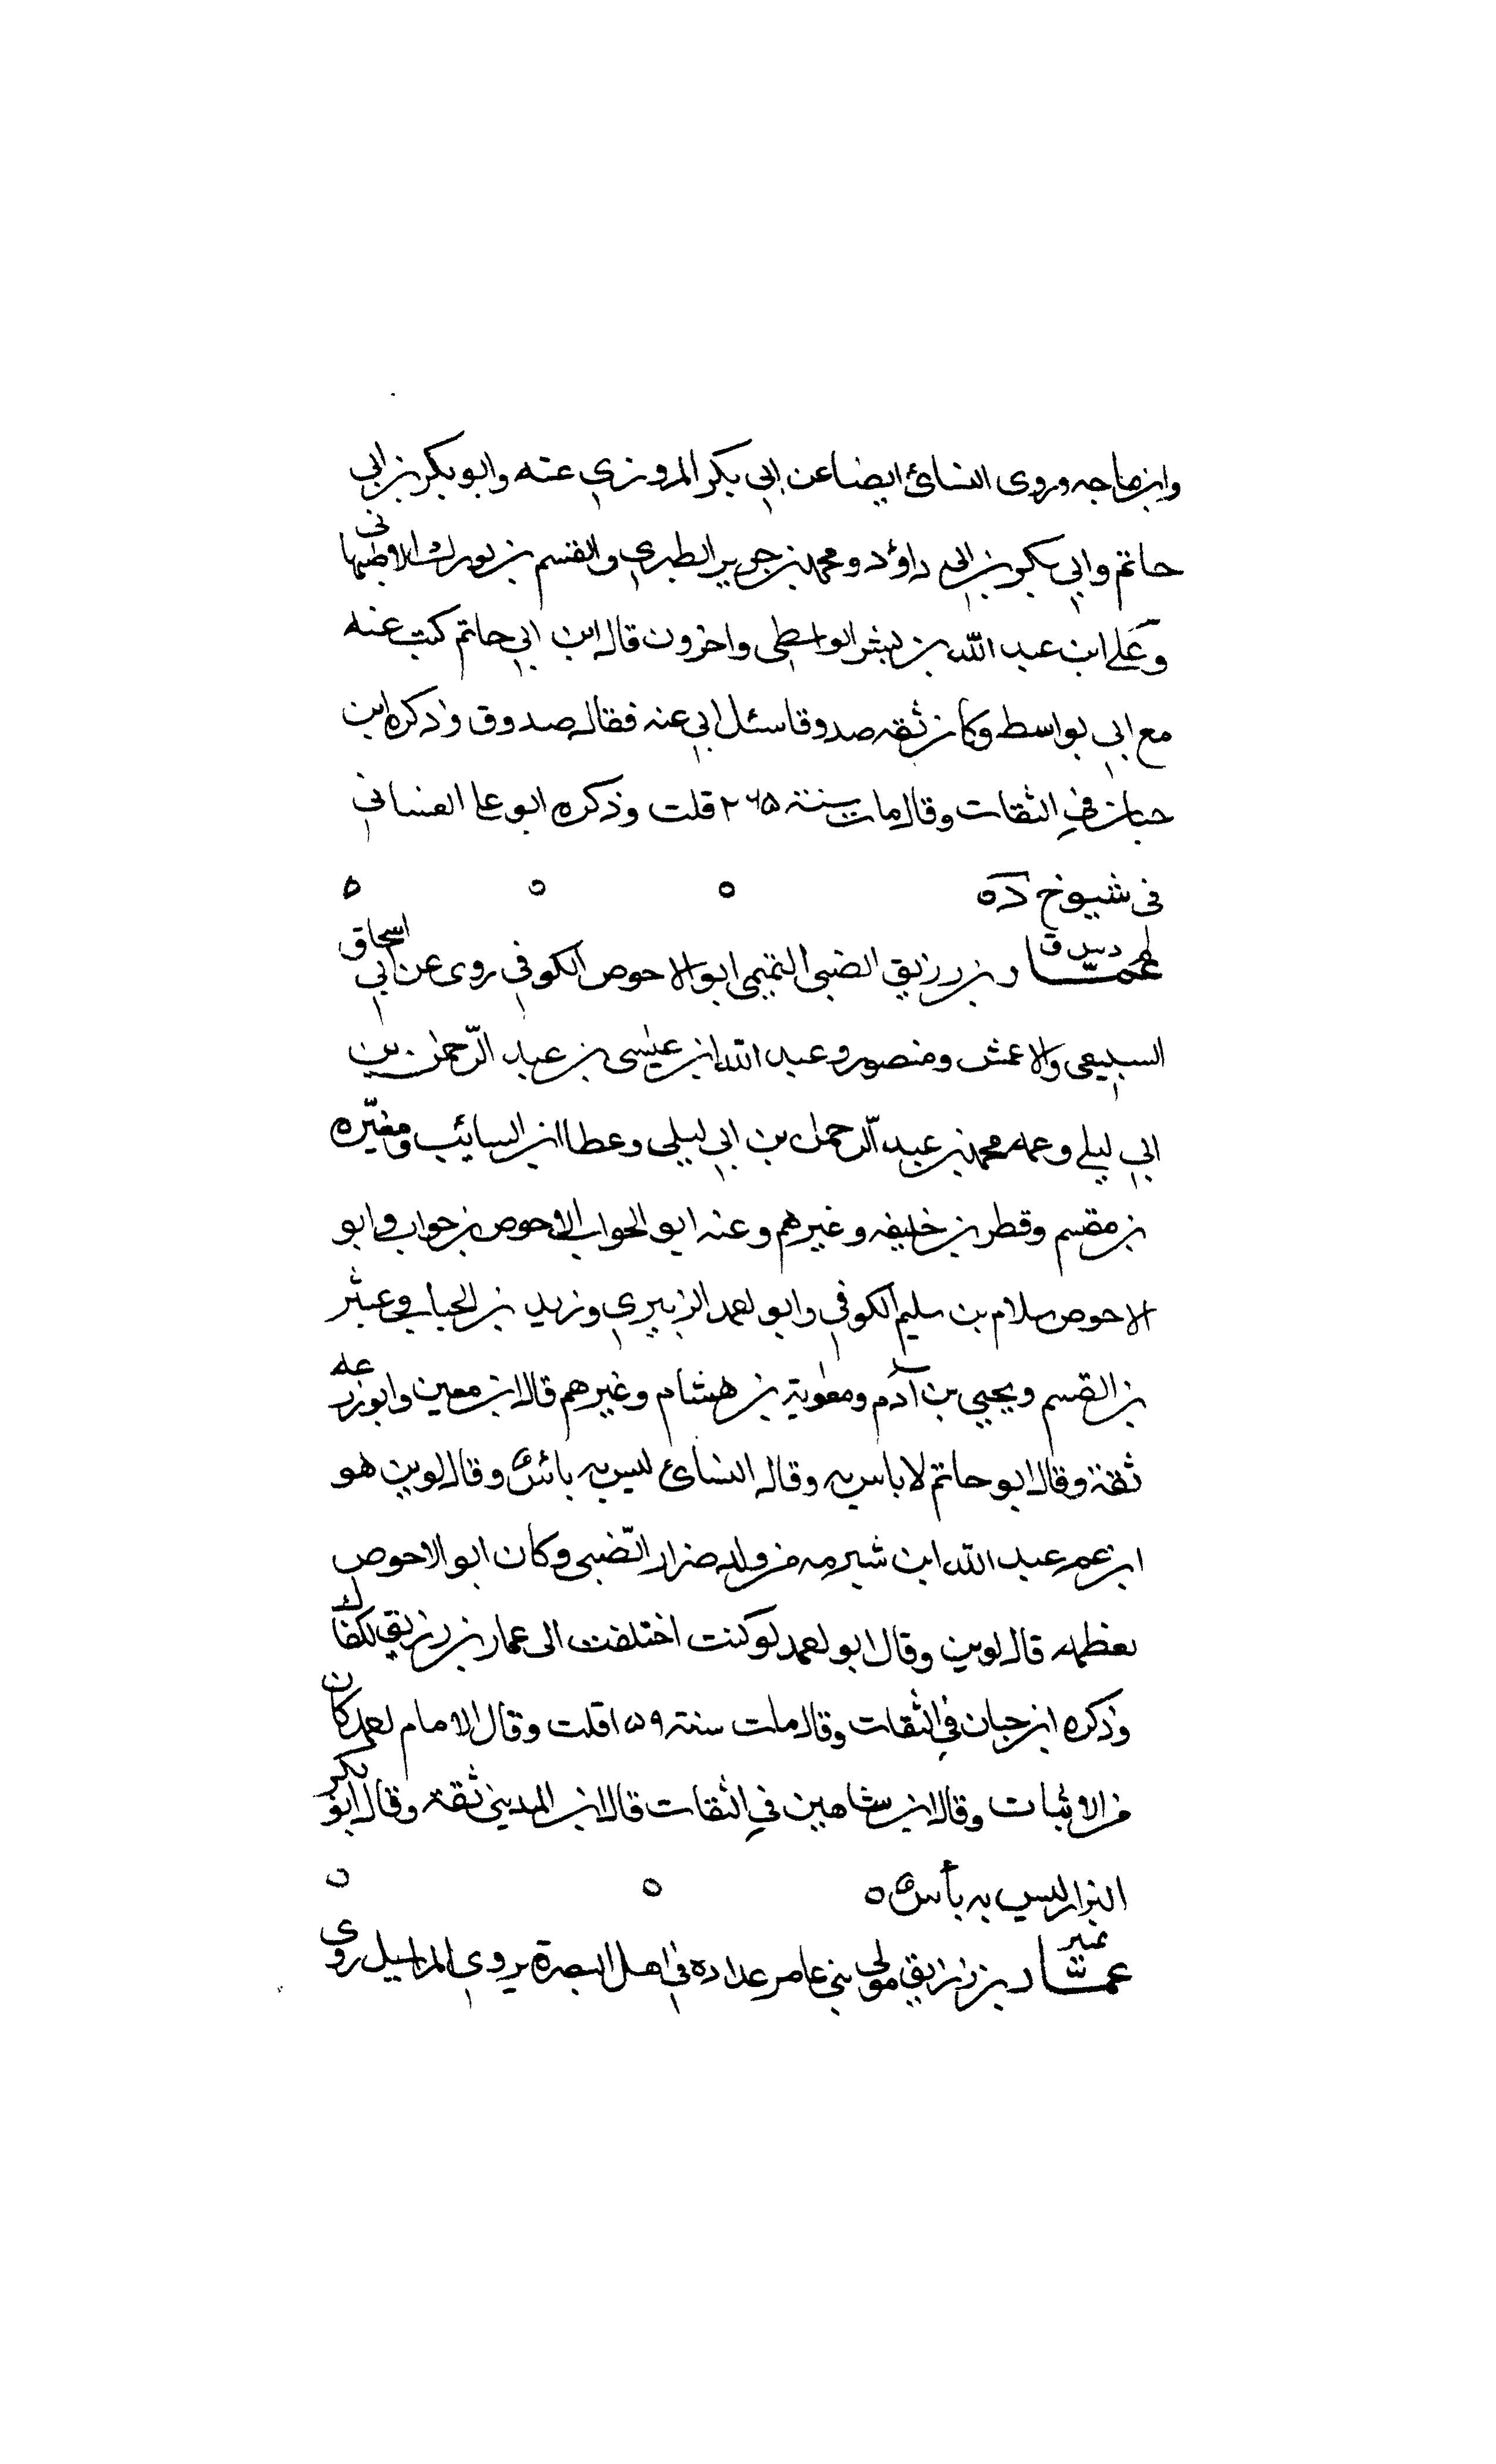 وابن ماجه وروى النسائ ايضا عن ابي بكر المروزي عنه وابو بكر بن ابي
حاتم وابي بكر بن ابي داؤد ومحمد بن جرير الطبري والقسم بن بورك الاصبهانى
وعلے ابن عبد الله بن بشر الواسطى واخرون قال ابن ابي حاتم كتبت عنه
مع ابي بواسط وكان ثقه صدوقا سئل ابي عنه فقال صدوق وذكره ابن
حبان في الثقات وقال مات سنة ۲۶۵ قلت وذكره ابو علے الغسانى
فى شيوخ د ٥
م د س ق اسحاق
عمــار بن رزيق الضبى التميمى ابو الاحوص الكوفي روى عن ابي
السبيعى والاعمش ومنصور وعبد الله ابن عيسى بن عبد الرحمن بن
ابي ليلے وعمه محمد بن عبد الرحمن بن ابي ليلى وعطا ابن السايئب ومغيره
بن مقسم وقطر بن خليفه وغيرهم وعنه ابو الجواب الاحوص بن جواب وابو
الاحوص سلام بن سليم الكوفي وابو احمد الزبيري وزيد بن الحباب وعبثر
بن القسم ويحيى بن آدم ومعوية بن هشام وغيرهم قال ابن معين وابو زرعه
ثقة وقال ابو حاتم لا باس به وقال النسائ ليس به بائس وقال لوين هو
ابن عم عبد الله ابن شبرمه من ولد ضرار الضبى وكان ابو الاحوص
يعظمه قال لوين وقال ابو احمد لو كنت اختلفت الى عمار بن رزيق لكفاك
وذكره ابن حبان في الثقات وقال مات سنة ۱۵۹ قلت وقال الامام احمد كان
من الاثبات وقال ابن شاهين في الثقات قال ابن المدينى ثقة وقال ابو بكر
البزار ليس به بأس ٥
تميز
عمــار بن رزيق مولى بنى عامر عداده في اهل البصرة يروي المراسيل روى